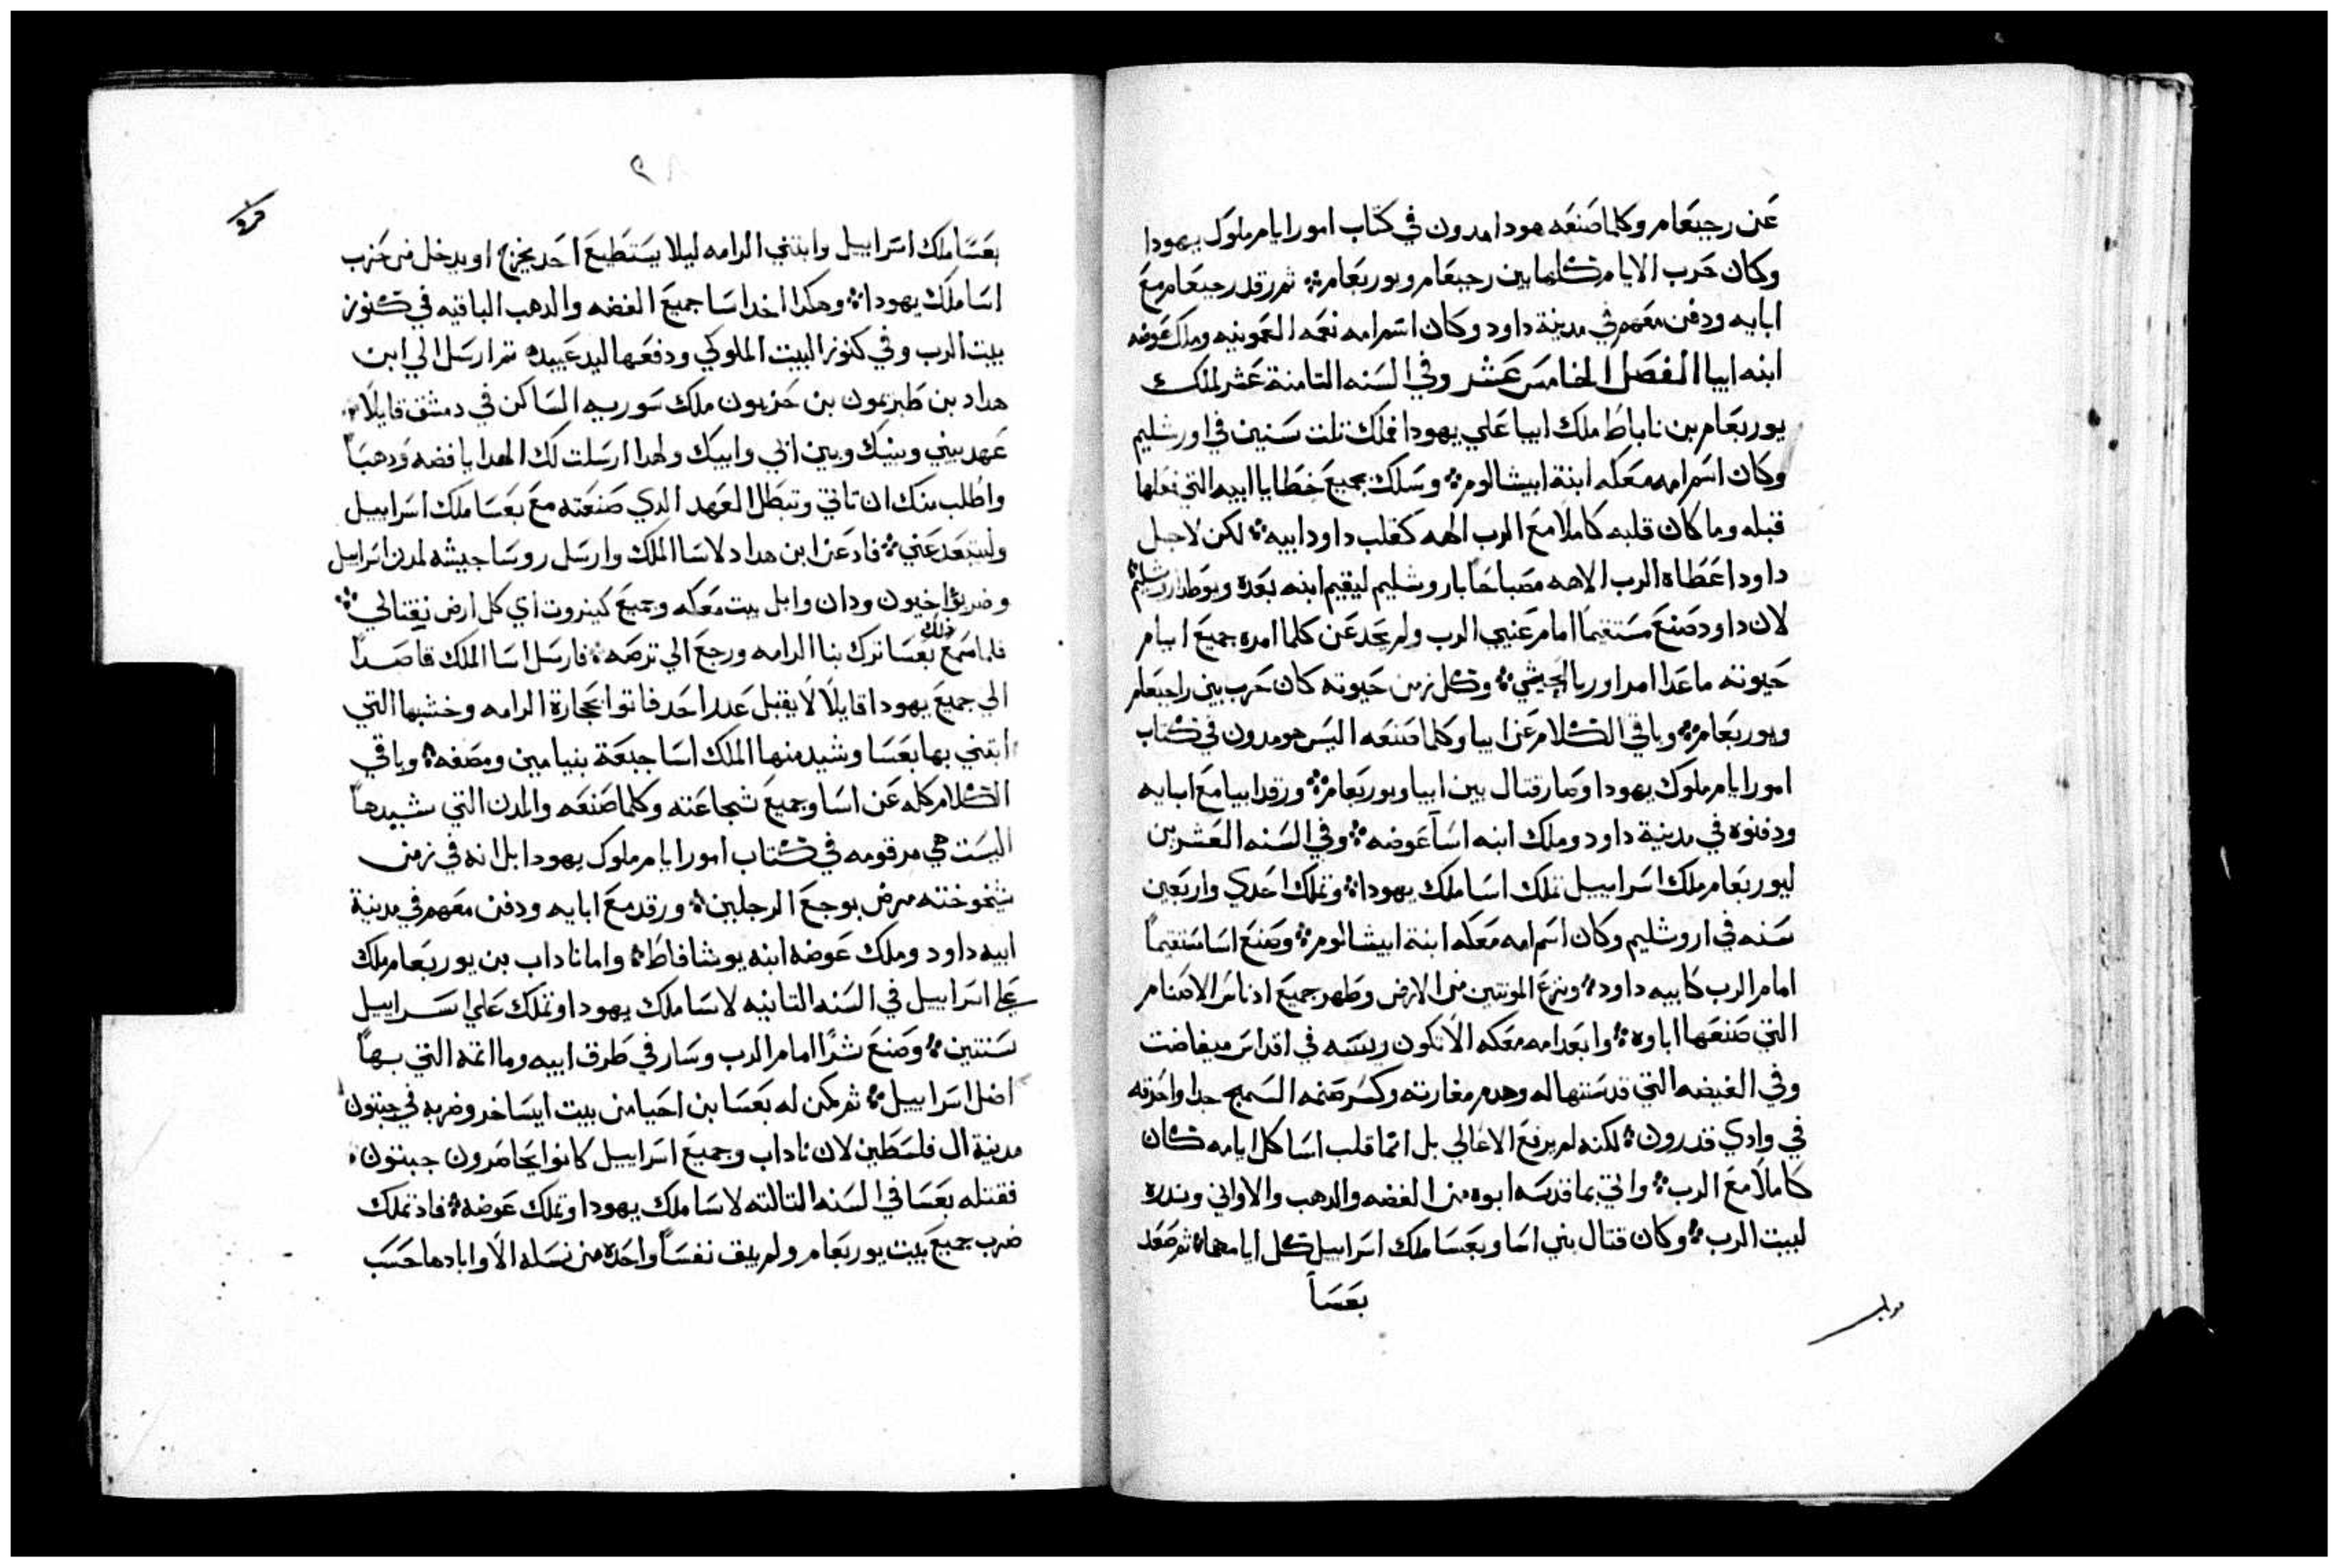 عن رحبعام وكلما صنعه هودا مدون في كتاب امور ايام ملوك يهودا
وكان حرب الايام كلها بين رحبعام ويوربعام ثم رقد رحبعام مع
ابايه ودفن معهم في مدينة داود وكان اسم امه نعمه العمونيه وملك عوضه
ابنه ابيا الفصل الخامس عشر وفي السنه الثامنة عشر لملك
يوربعام بن ناباط ملك ابيا علي يهودا فملك تلت سنين في اورشليم
وكان اسم امه معكه ابنة ابيشالوم وسلك بجميع خطايا ابيه التي فعلها
قبله وما كان قلبه كاملا مع الرب الهه كقلب داود ابيه لكن لاجل
داود اعطاه الرب الاهه مصباحا باروشليم ليقيم ابنه بعده ويوطد اروشليم
لان داود صنع مستقيما امام عيني الرب ولم يحد عن كلما امره جميع ايام
حيوته ما عدا امر اوريا الحيثي وكل زمن حيوته كان حرب بين راحبعام
ويوربعام وباقي الكلام عن ابيا وكلما صنعه اليس هو مدون في كتاب
امور ايام ملوك يهودا وصار قتال بين ابيا ويوربعام ورقد ابيا مع ابايه
ودفنوه في مدينة داود وملك ابنه اسا عوضه وفي السنه العشرين
ليوربعام ملك اسراييل تملك اسا ملك يهودا وتملك احدي واربعين
سنه في اروشليم وكان اسم امه معكه ابنة ابيشالوم وصنع اسا مستقيماً
امام الرب كابيه داود ونزع المونتين من الارض وطهر جميع ادناس الاصنام
التي صنعها اباوه وابعد امه معكه الا تكون ريسه في اقداس ميفاضت
وفي الغيضه التي قدستها له وهدم مغارته وكسر صنمه السمج جدا واحرقه
في وادي قدرون لكنه لم يرفع الاعالي بل انما قلب اسا كل ايامه كان
كاملاً مع الرب واتي بما قدسه ابوه من الفضه والدهب والاواني ونذره
لبيت الرب وكان قتال بين اسا وبعسا ملك اسراييل كل ايامهما ثم صعد
بعسا
بعسا ملك اسراييل وابتني الرامه ليلا يستطيع احد يخرج او يدخل من حزب
اسا ملك يهودا وهكدا اخد اسا جميع الفضه والدهب الباقيه في كنوز
بيت الرب وفي كنوز البيت الملوكي ودفعها ليد عبيده ثم ارسل الي ابن
هداد بن طبريمون بن حزيون ملك سوريه الساكن في دمشق قايلاً
عهد بيني وبينك وبين ابي وابيك ولهدا ارسلت لك الهدايا فضه ودهباً
واطلب منك ان تاتي وتبطل العهد الدي صنعته مع بعسا ملك اسراييل
وليبتعد عني فادعن ابن هداد لاسا الملك وارسل روسا جيشه لمدن اسراييل
وضربوا اخيون ودان وابل بيت معكه وجميع كينروت اي كل ارض نفتالي
فلما سمع ذلك بعسا ترك بنا الرامه ورجع الي ترصه فارسل اسا الملك قاصداً
الي جميع يهودا قايلاً لا يقبل عدر احد فاتوا بحجارة الرامه وخشبها التي
ابتني بها بعسا وشيد منها الملك اسا جبعة بنيامين ومصفه وباقي
الكلام كله عن اسا وجميع شجاعته وكلما صنعه والمدن التي شيدها
اليست هي مرقومه في كتاب امور ايام ملوك يهودا بل انه في زمن
شيخوخته مرض بوجع الرجلين ورقد مع ابايه ودفن معهم في مدينة
ابيه داود وملك عوضه ابنه يوشافاط واما ناداب بن يوربعام ملك
علي اسراييل في السنه التانيه لاسا ملك يهودا وتملك علي اسراييل
سنتين وصنع شرًا امام الرب وسار في طرق ابيه وما اتمه التي بها
اضل اسراييل ثم مكن له بعسا بن احيا من بيت ايساخر وضربه في جبتون
مدينة ال فلسطين لان ناداب وجميع اسراييل كانوا يحاصرون جبتون
فقتله بعسا في السنه التالته لاسا ملك يهودا وتملك عوضه فاذ تملك
ضرب جميع بيت يوربعام ولم يبق نفساً واحده من نسله الا وابادها حسب